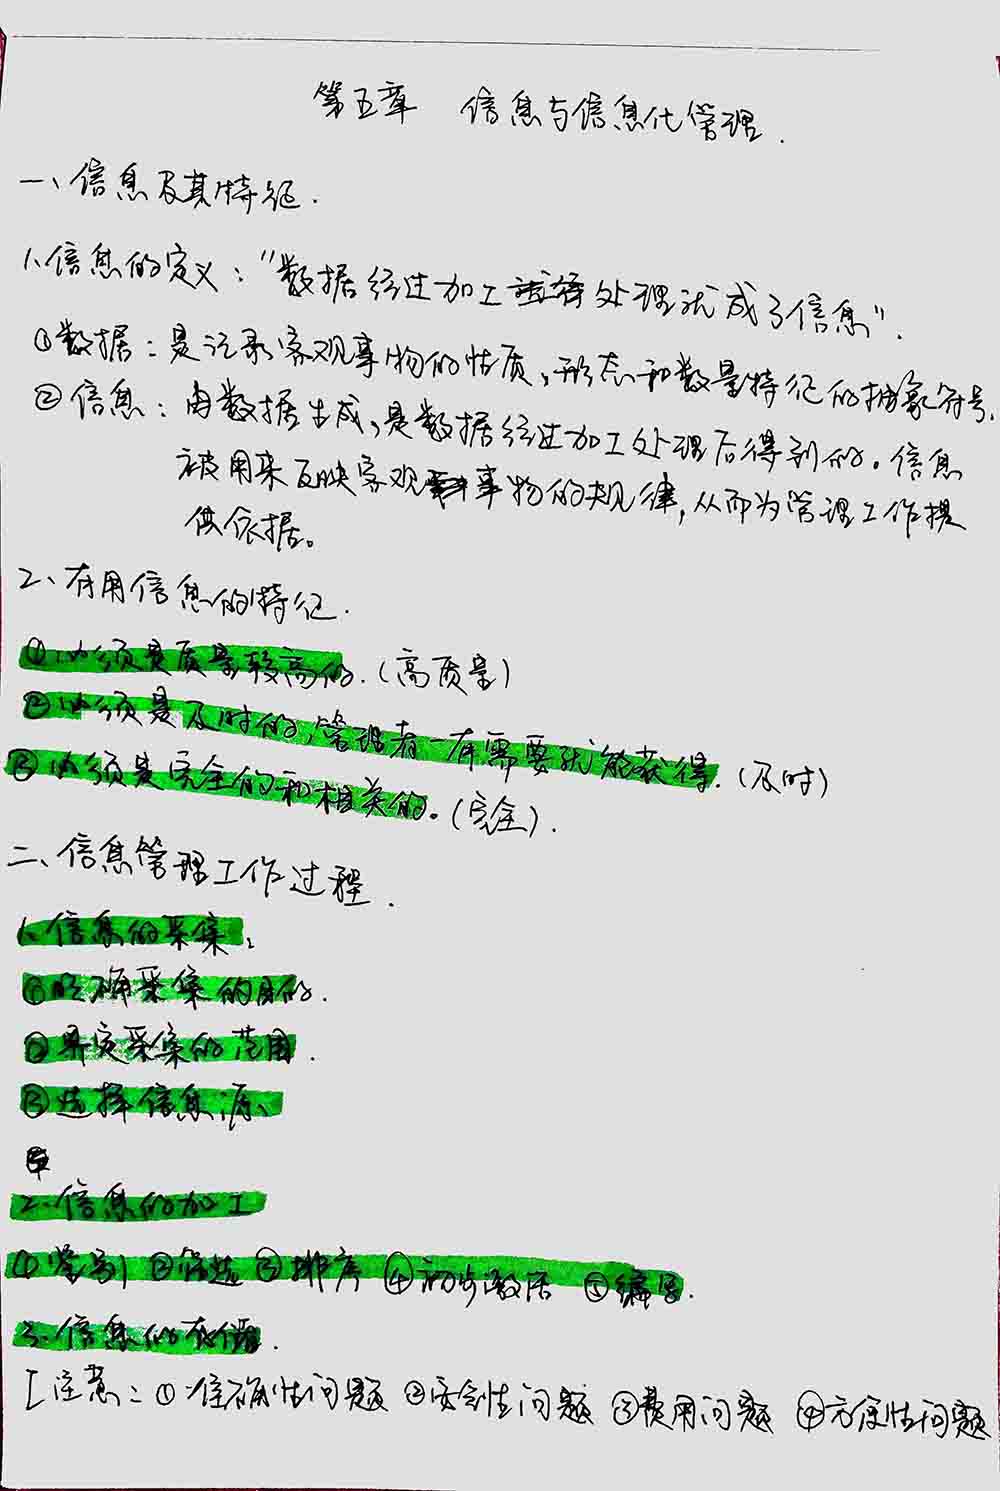 第五章 信息与信息化管理.
一、信息及其特征.
1、信息的定义："数据经过加工处理就成了信息".
①数据：是记录客观事物的性质,形态和数量特征的抽象符号.
②信息：由数据生成,是数据经过加工处理后得到的。信息
被用来反映客观事物的规律,从而为管理工作提
供依据。
2、有用信息的特征.
①必须是质量较高的.(高质量)
②必须是及时的,管理者一有需要就能获得.(及时)
③必须是完全的和相关的。(完全).
二、信息管理工作过程.
1、信息的采集:
①明确采集的目的.
②界定采集的范围.
③选择信息源、
2、信息的加工
①鉴别 ②筛选 ③排序 ④初步激活 ⑤编写.
3、信息的存储.
[注意：①准确性问题 ②安全性问题 ③费用问题 ④方便性问题